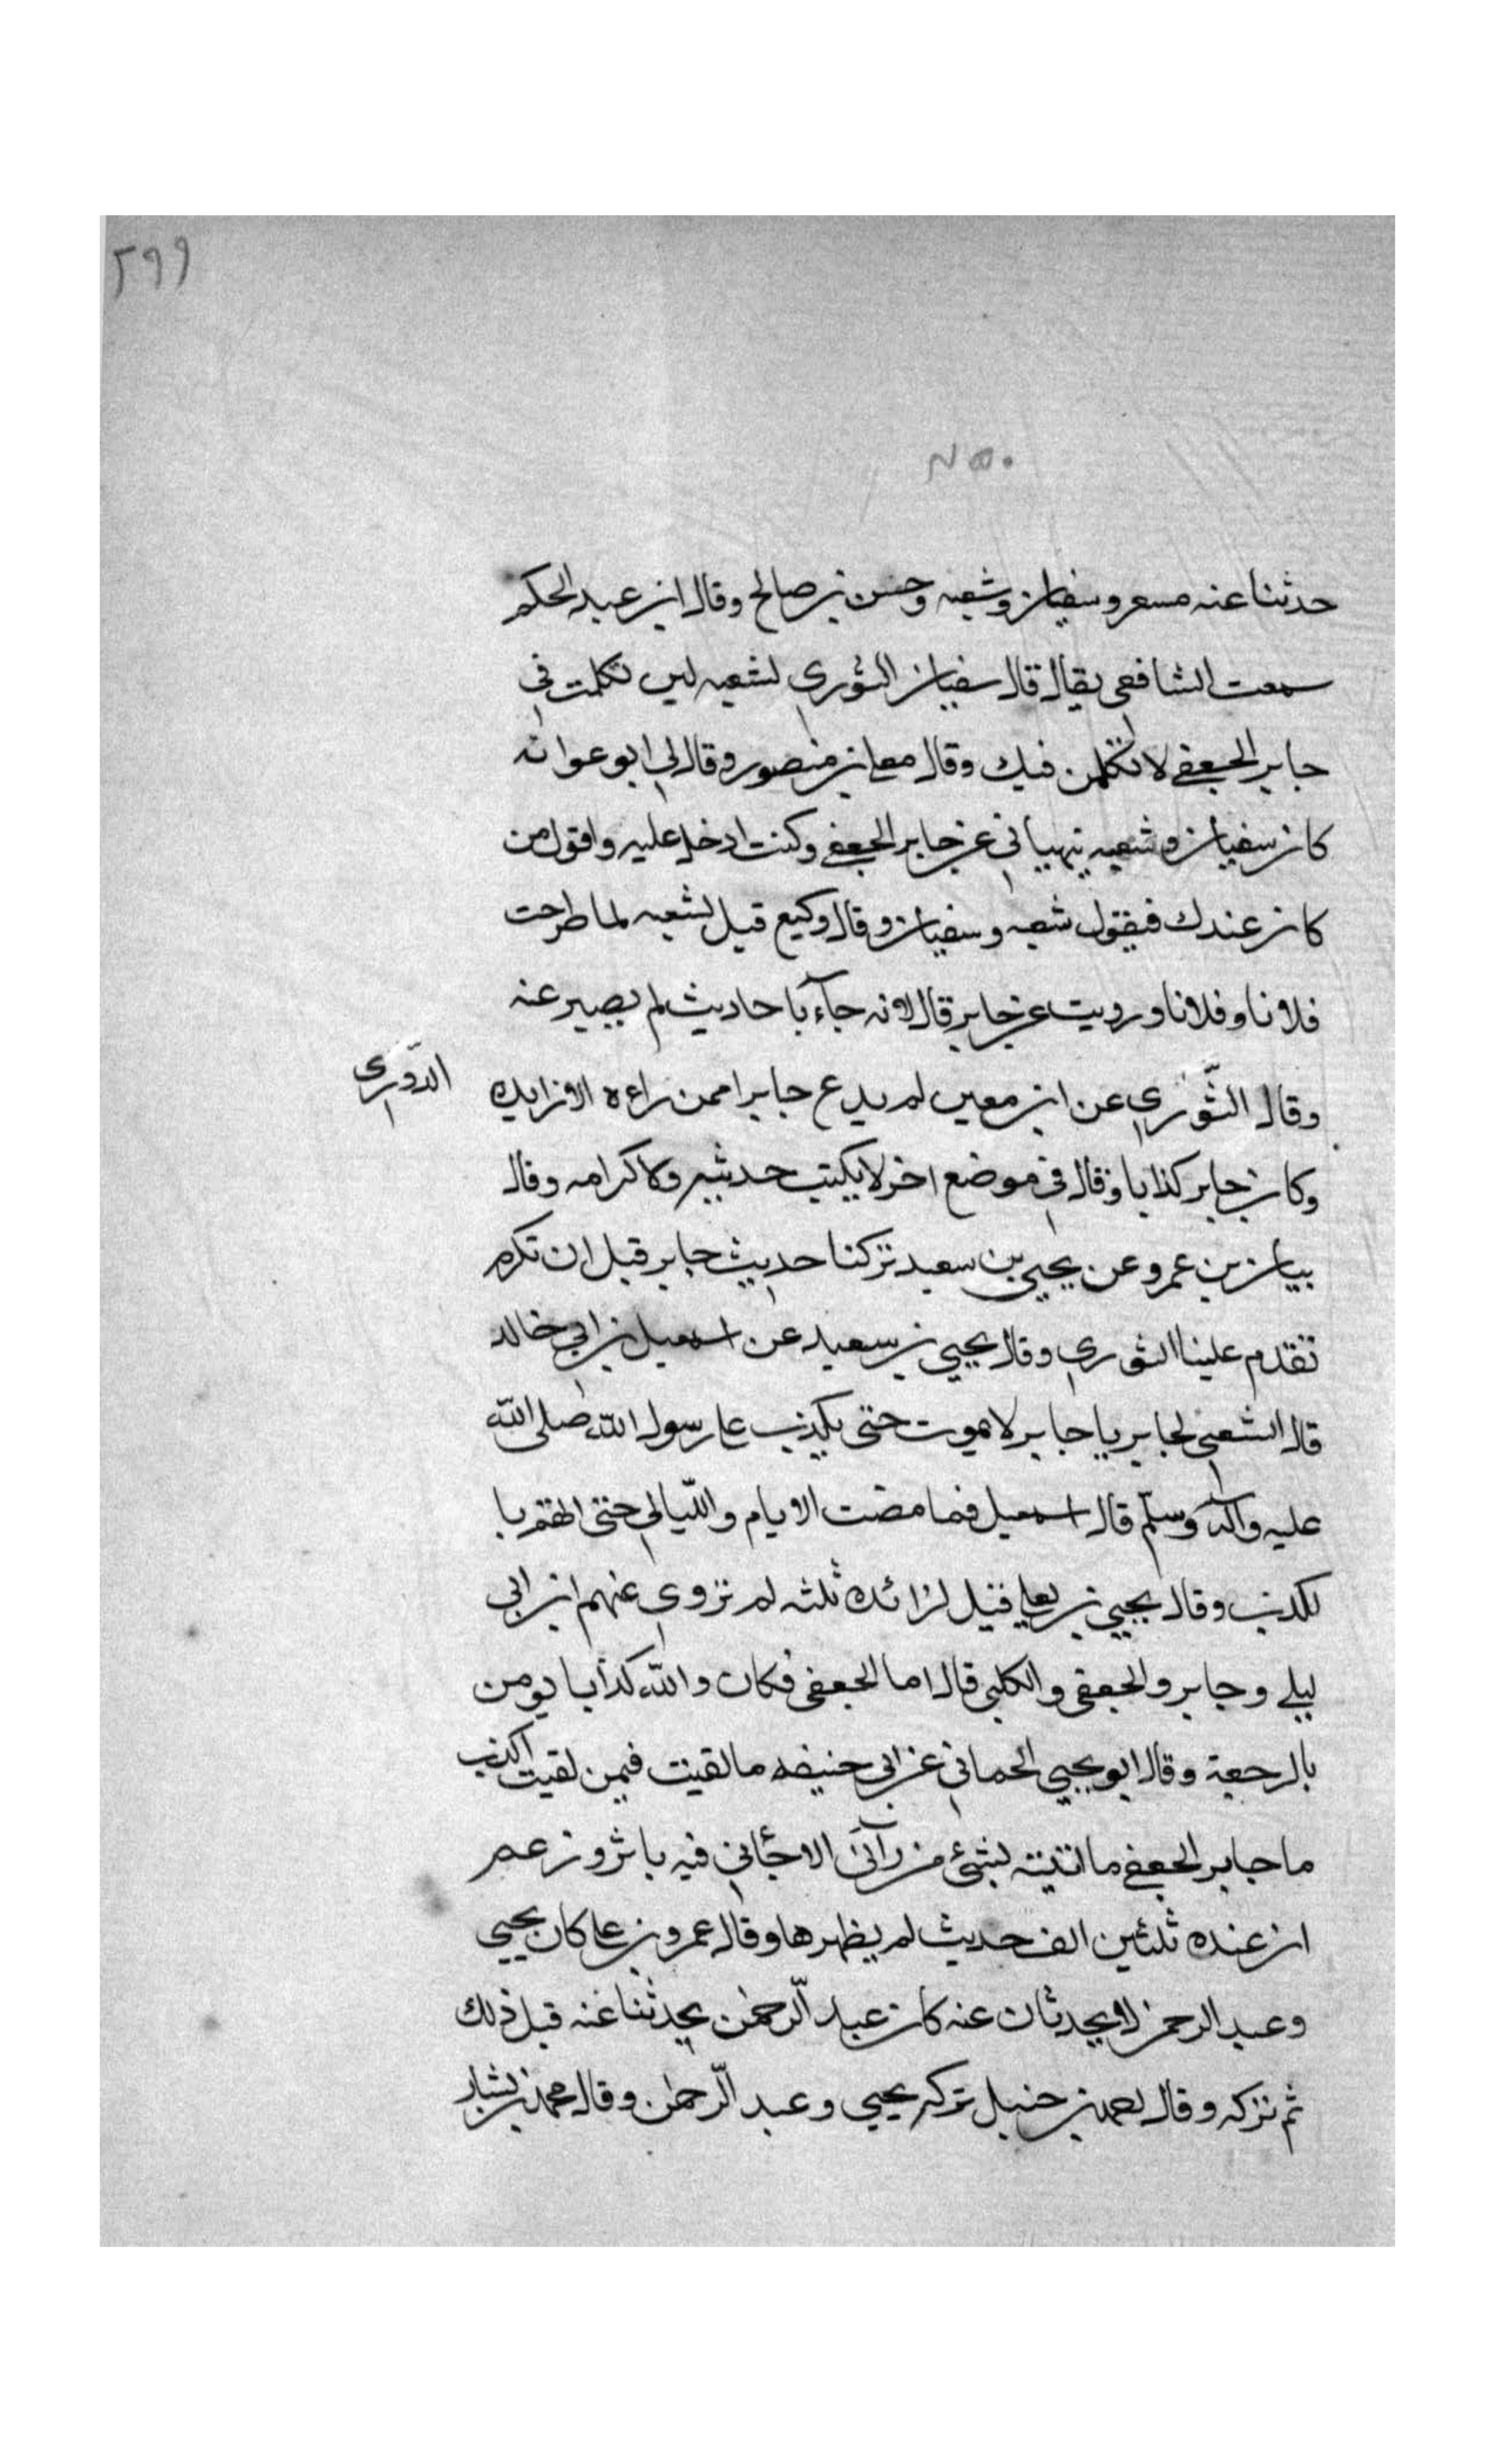 ٢٩٩
٤٥٠
حدثنا عنه مسعر وسفيان وشعبه وحسن بن صالح وقال ابن عبد الحكم
سمعت الشافعى يقال قال سفيان الثوري لشعبه لين تكلمت في
جابر الجعفي لا تكلمن فيك وقال معلى بن منصور وقال لي ابو عوانه
كان سفيان وشعبه ينهياني عن جابر الجعفي وكنت ادخل عليه واقول من
كان عندك فيقول شعبه وسفيان وقال وكيع قيل لشعبه لما طرحت
فلانا وفلانا ورويت عن جابر قال لانه جآء باحاديث لم يصبر عنه
وقال الثّوري عن ابن معين لم يدع جابرا ممن راءه الا زايده
الدّوري
وكان جابر كذابا وقال في موضع اخر لا يكتب حديثه ولا كرامه وقال
بيان بن عمرو عن يحيى بن سعيد تركنا حديث جابر قبل ان تكره
تقدم علينا الثوري وقال يحيى بن سعيد عن اسمعيل بن ابي خالد
قال الشعبي لجابر يا جابر لا تموت حتى يكذب على رسول الله صلى الله
عليه وآله وسلّم قال اسمعيل فما مضت الايام واللّيالي حتى اتهم با
لكذب وقال يحيى بن يعلي قيل لزائده ثلثه لم تروي عنهم ابن ابى
ليلي وجابر والجعفى والكلبي قال اما الجعفى فكان والله كذابا يومن
بالرجعة وقال ابو يحيى الحماني عن ابى حنيفه ما لقيت فيمن لقيت اكذب
ما جابر الجعفي ما اتيته بشئ من رآئ الا جٔاني فيه باثر وزعم
ان عنده ثلثين الف حديث لم يظهرها وقال عمرو بن على كان يحيى
وعبد الرحمن لا يحدثان عنه كان عبد الّرحمٰن يحدثنا عنه قبل ذلك
ثم تركه وقال احمد بن حنبل تركه يحيى وعبد الّرحمٰن وقال محمد بن بشار